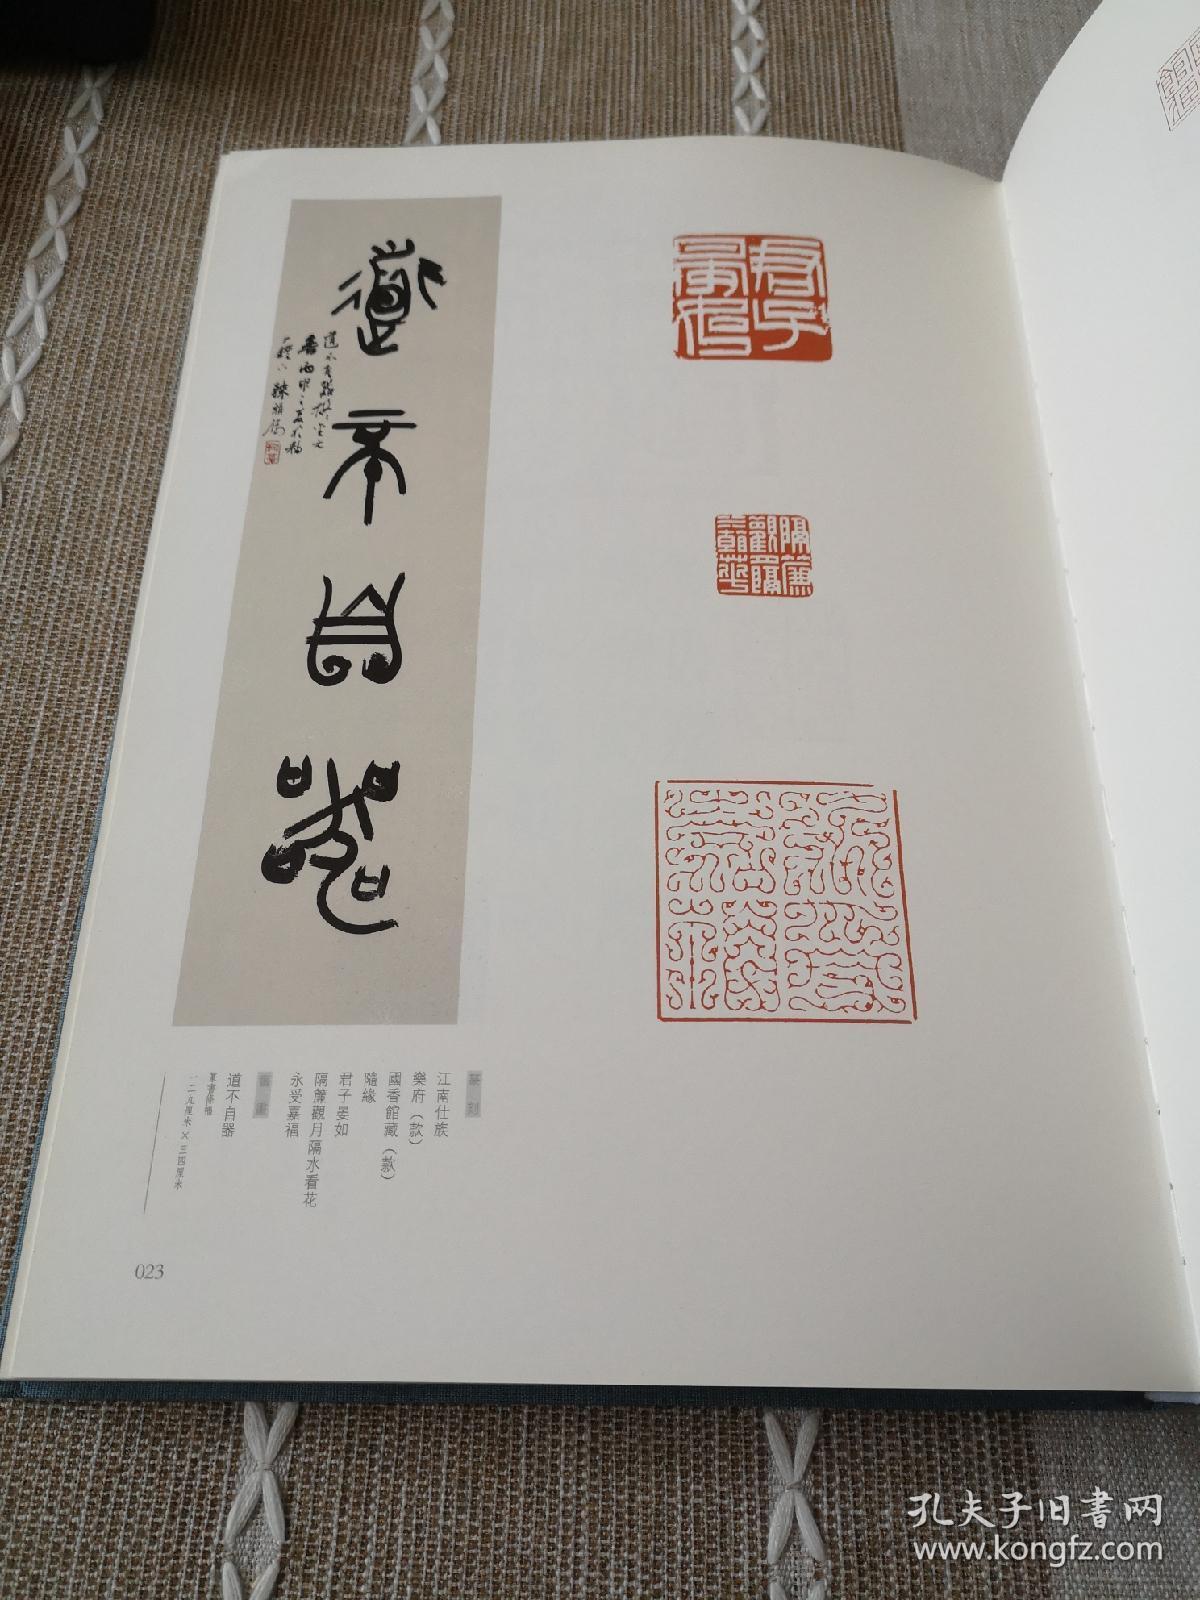 道不自器
君子晏如
隔簾觀月隔水看花
篆刻
江南仕族
樂府（款）
國香館藏（款）
隨緣
君子晏如
隔簾觀月隔水看花
永受嘉福
書畫
道不自器
篆書條幅
一二九厘米×三四厘米
023
孔夫子旧書网
www.kongfz.com